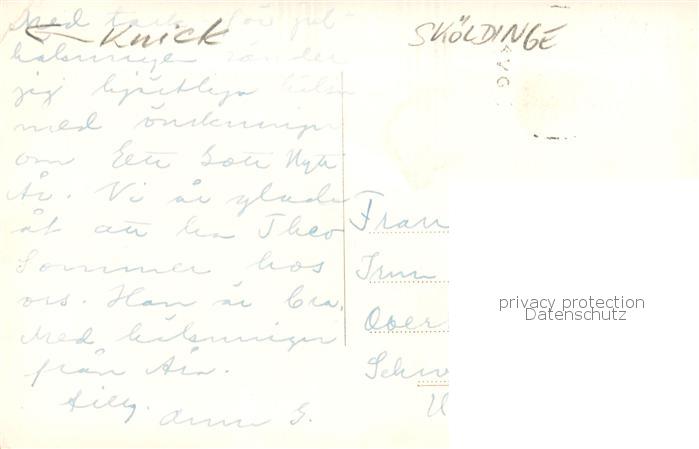 Knick
SKÖLDINGE
Med tack för jul-
hälsningen sänder
jag hjärtliga häls
med önskningar
om Ett Gott Nytt
År. Vi är glada
åt att ha Theo
Sommer hos
oss. Han är bra.
Med hälsningar
från
Anna G.
Frau
Irm
Ober
Schw
privacy protection
Datenschutz